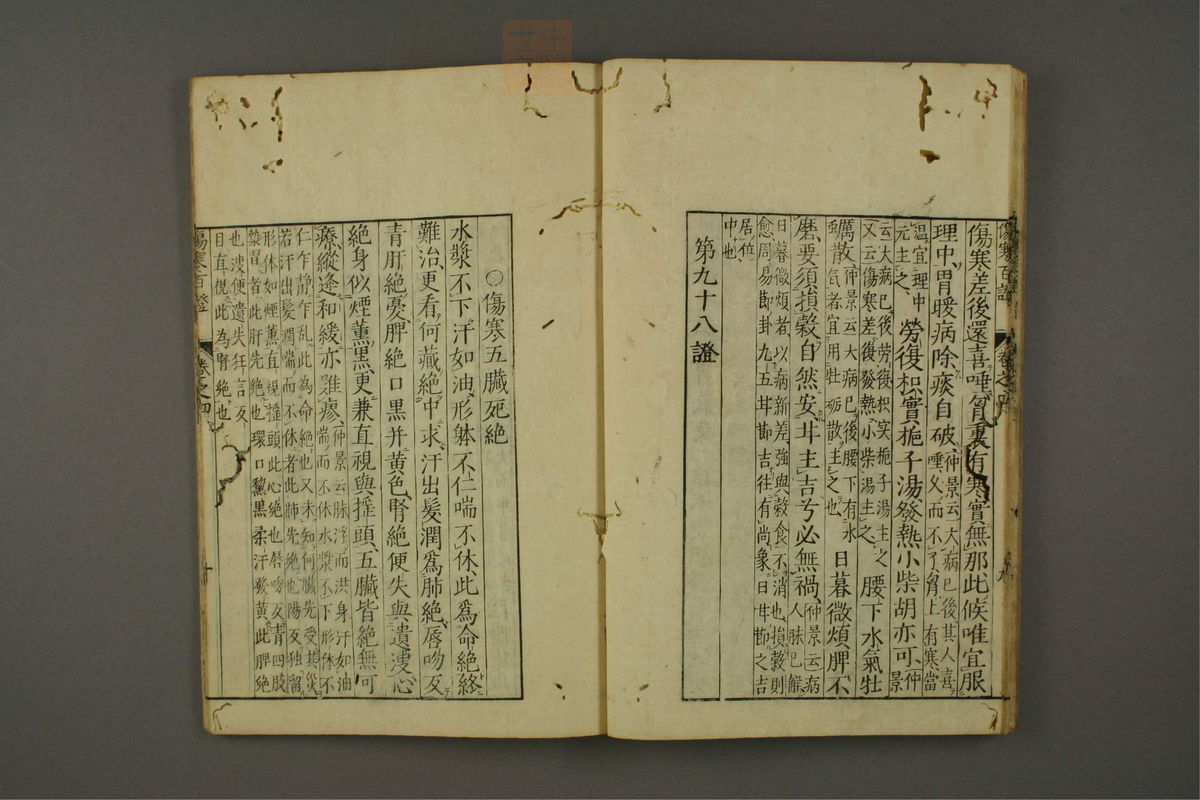 傷寒百證 卷之四 九
傷寒差後還喜唾胷裏有寒實無那此候唯宜服
理中胃暖病除痰自破仲景云大病已後其人喜
唾久而不了胷上有寒當
溫宜理中
元主之勞復枳實梔子湯發熱小柴胡亦可仲景
云大病已後勞復枳实梔子湯主之
又云傷寒差後發熱小柴湯主之腰下水氣牡
蠣散仲景云大病已後腰下有水
气者宜用牡砺散主之也日暮微煩脾不
磨要須損穀自然安甘主吉兮必無禍仲景云病
人脉已解
日暮微煩者以病新差強與穀食不消也損穀則
愈周易節卦九五甘節吉往有尚象曰甘節之吉
居位
中也
第九十八證
○傷寒五臟死絶
水漿不下汗如油形躰不仁喘不休此爲命絶終
難治更看何藏絶中求汗出髮潤爲肺絶唇吻反
青肝絶憂脾絶口黒并黄色腎絶便失與遺溲心
絶身似煙薫黒更兼直視與揺頭五臟皆絶無可
療縱逢和緩亦難瘳仲景云脉浮而洪身汗如油
喘而不休水漿不下形体不
仁乍静乍乱此為命絶也又未知何臟先受其災
若汗出髮潤喘而不休者此肺先絶也陽反独留
形体如煙薫直視揺頭此心絶也唇吻反青四肢
漐習者此肝先絶也環口黧黒柔汗發黄此脾絶
也溲便遺失狂言反
目直視此為腎絶也
傷寒百證 卷之四 十